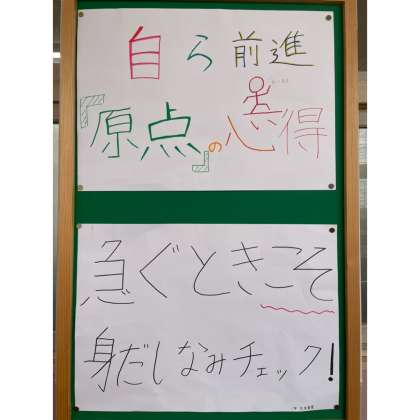 自ら前進
『原点』の心得
急ぐときこそ
身だしなみチェック!